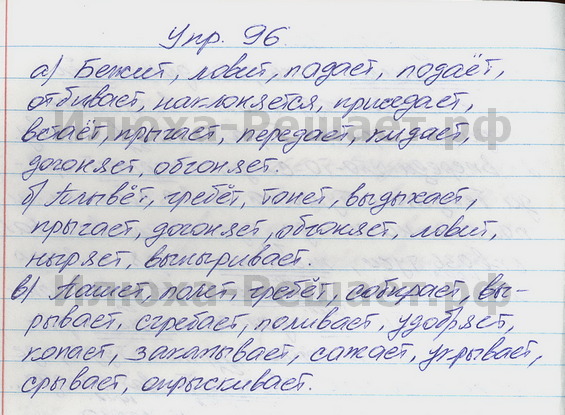 Упр. 96.
а) Бежит, ловит, падает, подаёт,
отбивает, наклоняется, приседает,
встаёт, прыгает, передает, кидает,
догоняет, обгоняет.
б) Плывёт, гребёт, тонет, выдыхает,
прыгает, догоняет, обгоняет, ловит,
ныряет, выныривает.
в) Пашет, полет, гребёт, собирает, вы-
рывает, сгребает, поливает, удобряет,
копает, закапывает, сажает, укрывает,
срывает, опрыскивает.
Илюха-Решает.рф
Илюха-Решает.рф